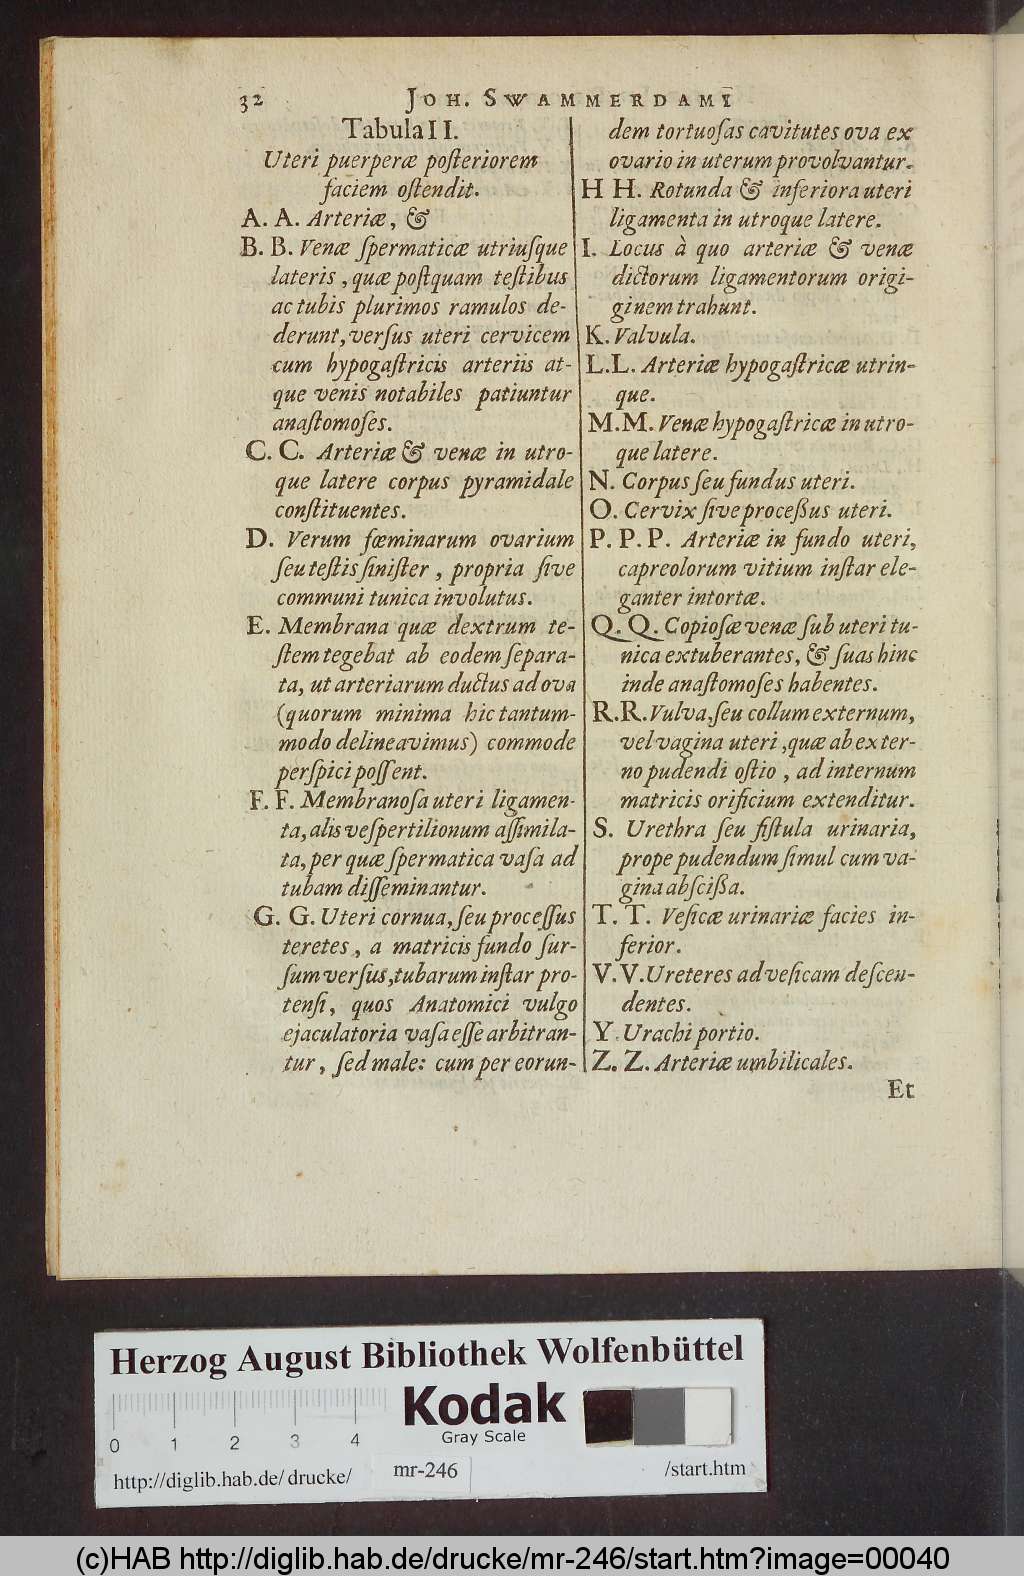 32 JOH. SWAMMERDAMI
Tabula II.
Uteri puerperæ poſteriorem
faciem oſtendit.
A. A. Arteriæ, &
B. B. Venæ ſpermaticæ utriuſque
lateris, quæ poſtquam teſtibus
ac tubis plurimos ramulos de-
derunt, verſus uteri cervicem
cum hypogaſtricis arteriis at-
que venis notabiles patiuntur
anaſtomoſes.
C. C. Arteriæ & venæ in utro-
que latere corpus pyramidale
conſtituentes.
D. Verum fœminarum ovarium
ſeu teſtis ſiniſter, propria ſive
communi tunica involutus.
E. Membrana quæ dextrum te-
ſtem tegebat ab eodem ſepara-
ta, ut arteriarum ductus ad ova
(quorum minima hic tantum-
modo delineavimus) commode
perſpici poſſent.
F. F. Membranoſa uteri ligamen-
ta, alis veſpertilionum aſſimila-
ta, per quæ ſpermatica vaſa ad
tubam diſſeminantur.
G. G. Uteri cornua, ſeu proceſſus
teretes, a matricis fundo ſur-
ſum verſus, tubarum inſtar pro-
tenſi, quos Anatomici vulgo
ejaculatoria vaſa eſſe arbitran-
tur, ſed male: cum per eorun-
dem tortuoſas cavitutes ova ex
ovario in uterum provolvantur.
H H. Rotunda & inferiora uteri
ligamenta in utroque latere.
I. Locus à quo arteriæ & venæ
dictorum ligamentorum origi-
ginem trahunt.
K. Valvula.
L. L. Arteriæ hypogaſtricæ utrin-
que.
M. M. Venæ hypogaſtricæ in utro-
que latere.
N. Corpus ſeu fundus uteri.
O. Cervix ſive proceßus uteri.
P. P. P. Arteriæ in fundo uteri,
capreolorum vitium inſtar ele-
ganter intortæ.
Q. Q. Copioſæ venæ ſub uteri tu-
nica extuberantes, & ſuas hinc
inde anaſtomoſes habentes.
R. R. Vulva, ſeu collum externum,
vel vagina uteri, quæ ab exter-
no pudendi oſtio, ad internum
matricis orificium extenditur.
S. Urethra ſeu fiſtula urinaria,
prope pudendum ſimul cum va-
gina abſcißa.
T. T. Veſicæ urinariæ facies in-
ferior.
V. V. Ureteres ad veſicam deſcen-
dentes.
Y. Urachi portio.
Z. Z. Arteriæ umbilicales.
Et
Herzog August Bibliothek Wolfenbüttel
Kodak
Gray Scale
0 1 2 3 4
http://diglib.hab.de/drucke/ mr-246 /start.htm
(c)HAB http://diglib.hab.de/drucke/mr-246/start.htm?image=00040